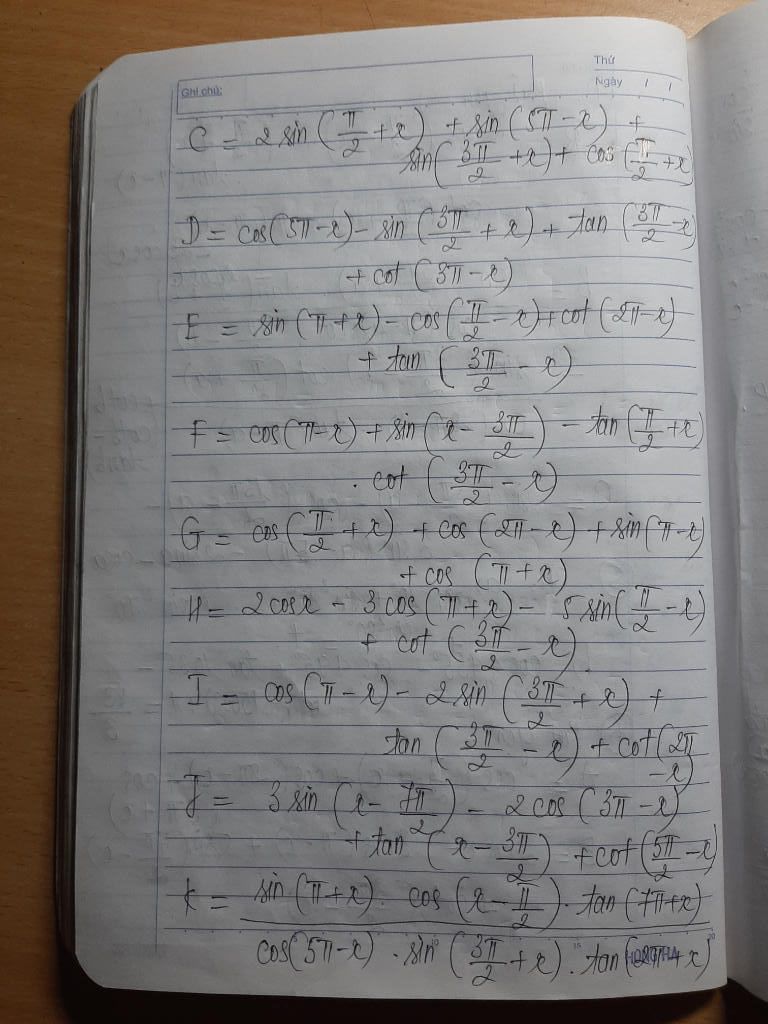 Thứ
Ghi chú:
Ngày / /
C = 2 sin (π/2 + x) + sin (5π - x) +
sin (3π/2 + x) + cos (π/2 + x)
D = cos (5π - x) - sin (3π/2 + x) + tan (3π/2 - x)
+ cot (3π - x)
E = sin (π + x) - cos (π/2 - x) + cot (2π - x)
+ tan (3π/2 - x)
F = cos (π - x) + sin (x - 3π/2) - tan (π/2 + x)
. cot (3π/2 - x)
G = cos (π/2 + x) + cos (2π - x) + sin (π - x)
+ cos (π + x)
H = 2 cos x - 3 cos (π + x) - 5 sin (π/2 - x)
+ cot (3π/2 - x).
I = cos (π - x) - 2 sin (3π/2 + x) +
tan (3π/2 - x) + cot (2π
- x)
J = 3 sin (x - 7π/2) - 2 cos (3π - x)
+ tan (x - 3π/2) + cot (5π/2 - x)
K = sin (π + x) . cos (x - π/2) . tan (7π + x)
cos (5π - x) . sin (3π/2 + x) . tan (2π + x)
HONG HA